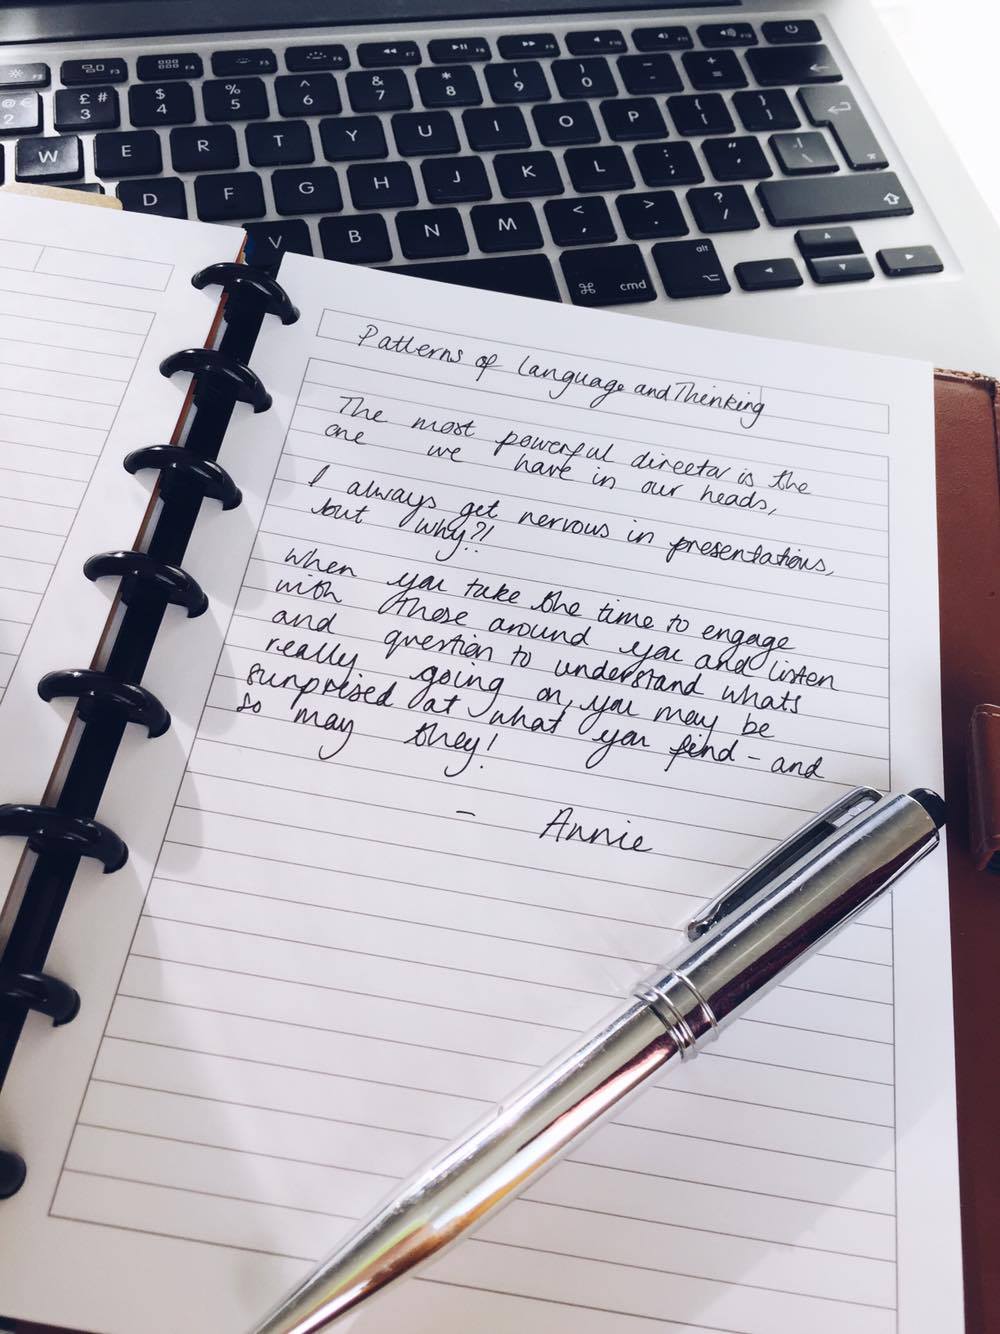 F2 F3 F4 F5 F6 F7 F8 F9 F10 F11 F12
@ € 2 £ # 3 $ 4 % 5 ^ 6 & 7 * 8 ( 9 ) 0 _ - + =
W E R T Y U I O P { [ } ]
D F G H J K L : ; " ' | \
V B N M < , > . ? /
⌘ cmd alt ⌥
Patterns of Language and Thinking
The most powerful director is the
one we have in our heads,
I always get nervous in presentations,
but why?!
When you take the time to engage
with those around you and listen
and question to understand whats
really going on, you may be
surprised at what you find - and
so may they!
- Annie